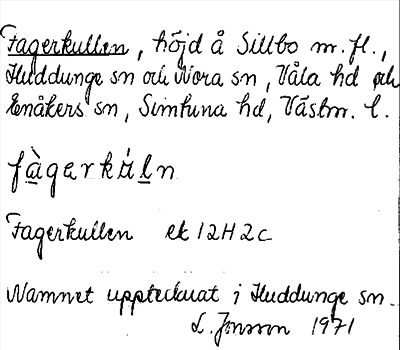 Fagerkullen, höjd å Sillbo m.fl.,
Huddunge sn och Nora sn, Våla hd och
Enåkers sn, Simtuna hd, Västm. l.
fàgarkúln
Fagerkullen ek 12H2c
Namnet upptecknat i Huddunge sn.
L. Jonsson 1971